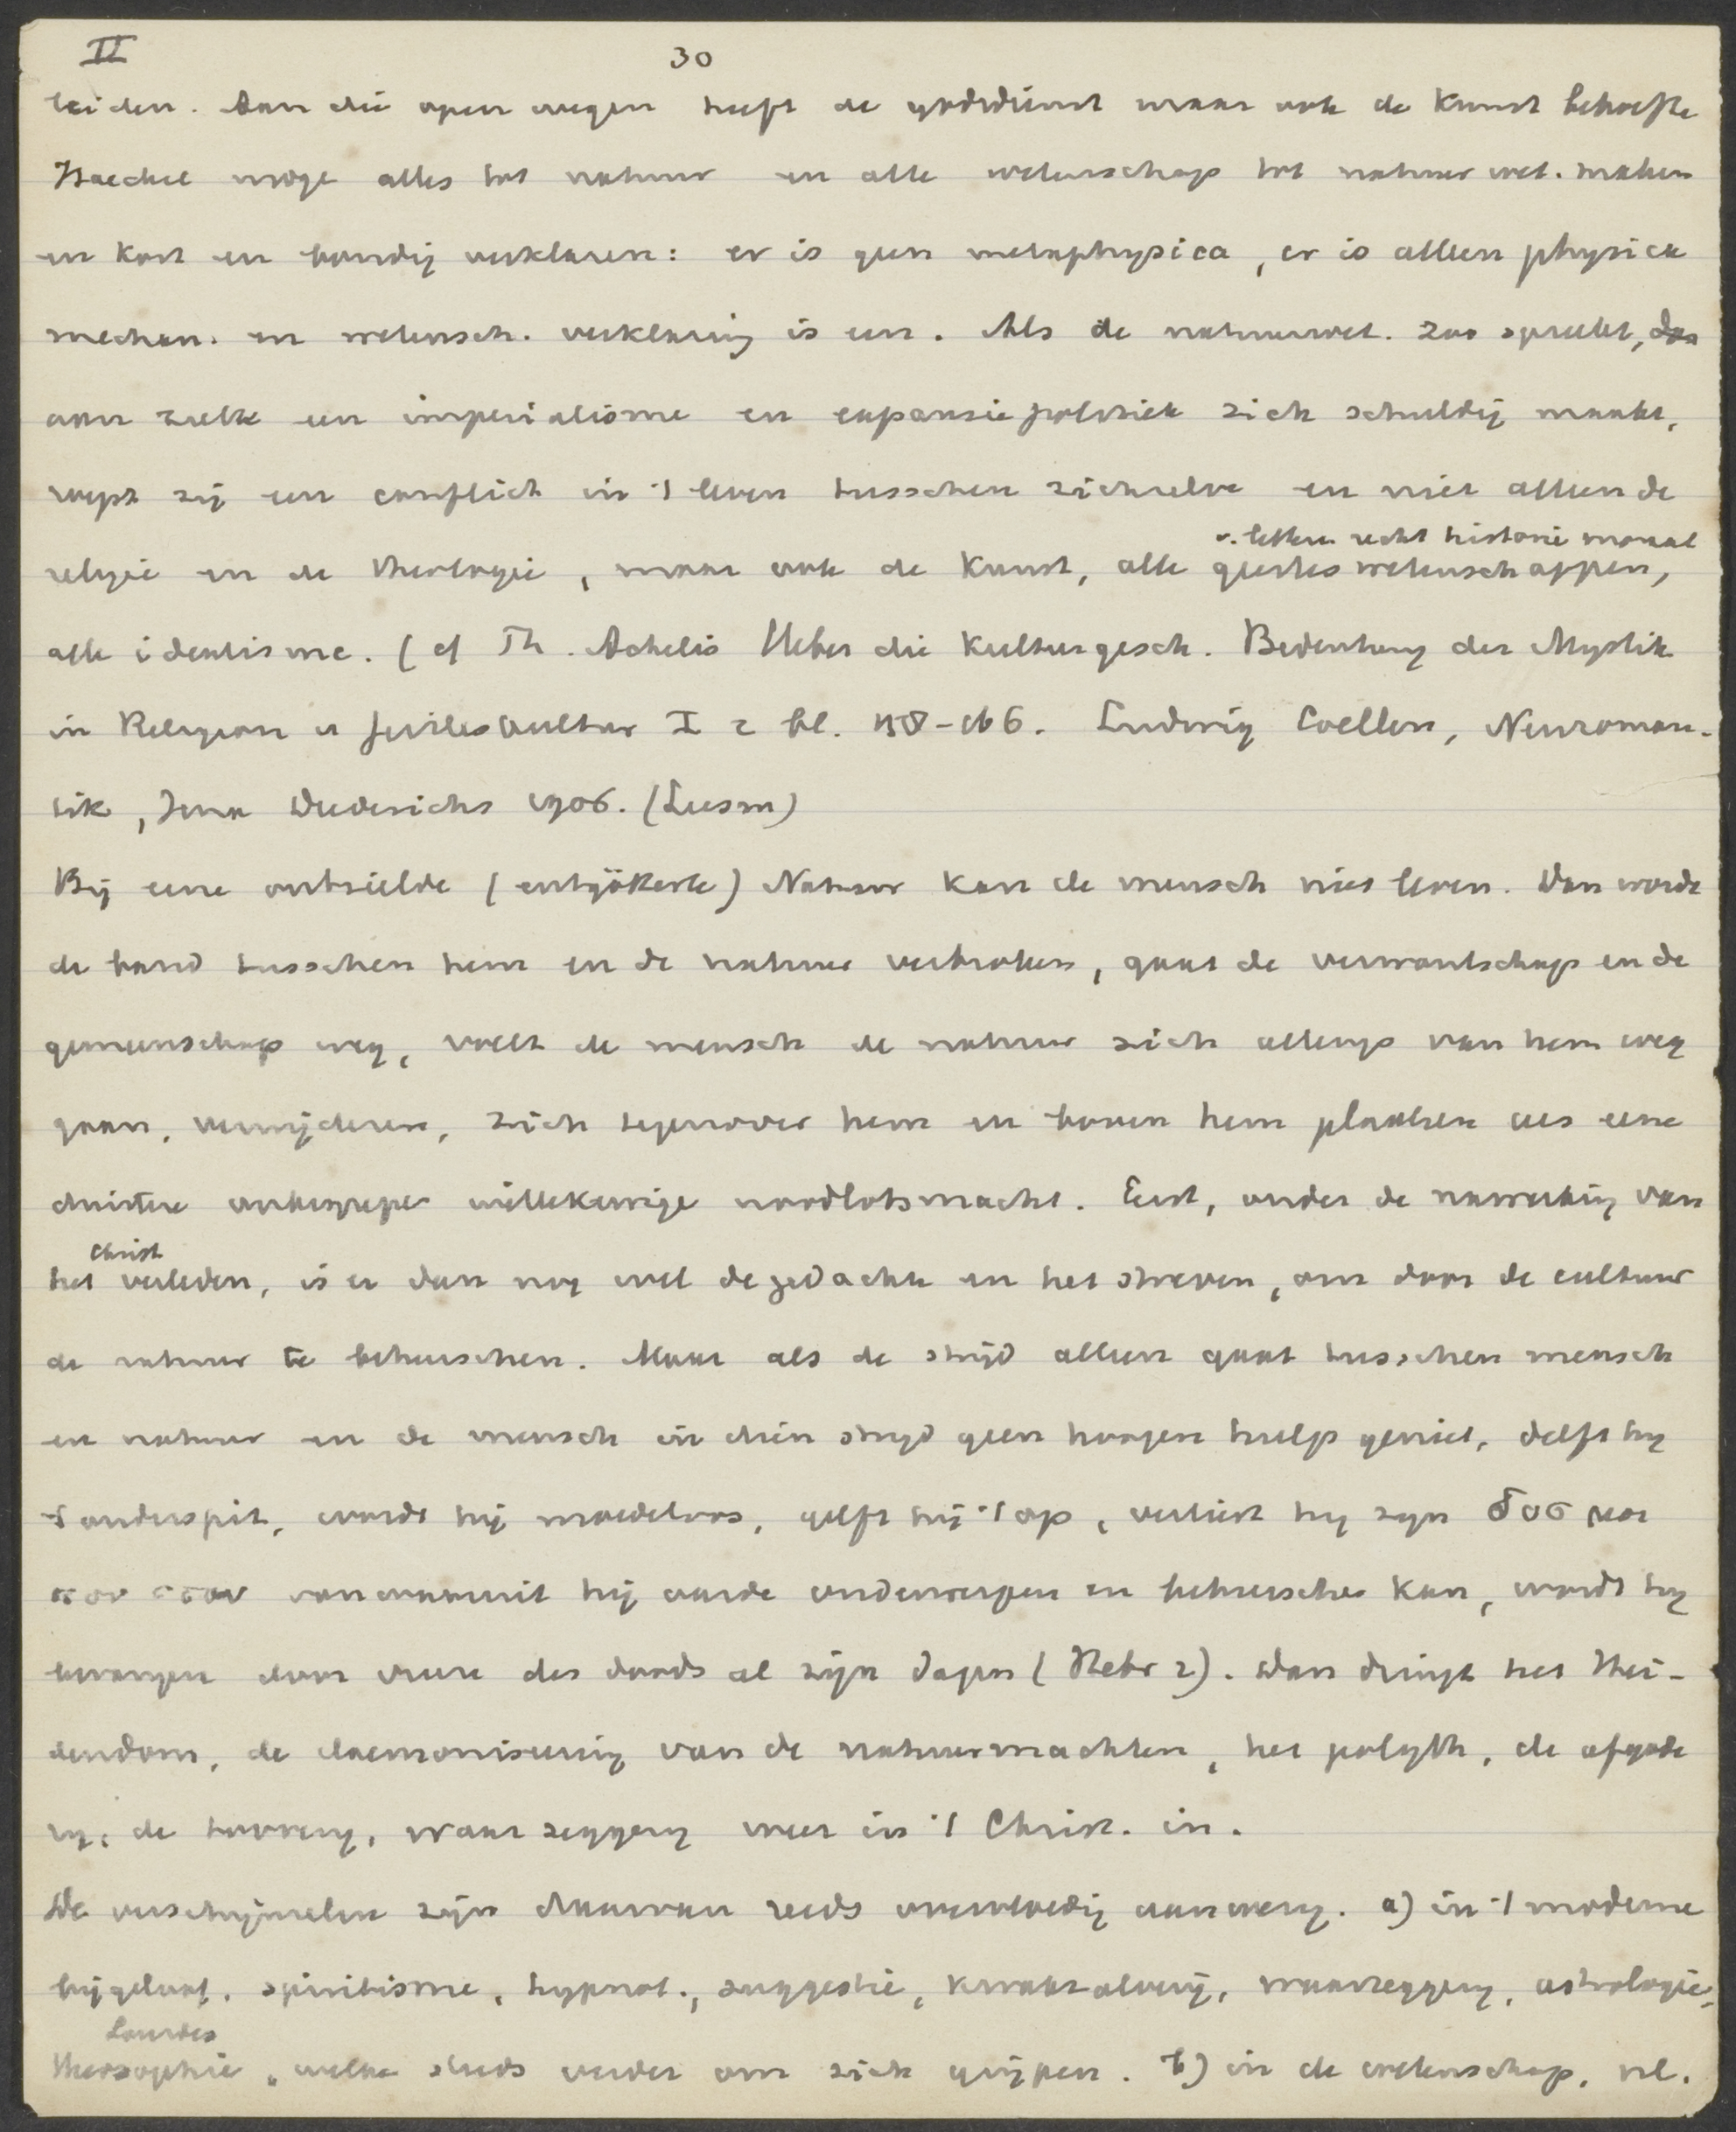 II 30
leiden. Aan die open wegen heeft de godsdienst maar ook de Kunst behoefte
Haeckel moge alles tot natuur en alle wetenschap tot natuurwet. maken
en kort en bondig verklaren: er is geen metaphysica, er is alleen physica
mechan. en wetensch. verklaring is een. Als de natuurwet. zoo spreekt, dan
aan zulk een imperialisme en expansiepolitiek zich schuldig maakt,
roept zij een conflict in 't leven tusschen zichzelve en niet alleen de
v. letteren recht historie moraal
religie en de theologie, maar ook de Kunst, alle geesteswetenschappen,
alle idealisme. (cf Th. Achelis Ueber die Kulturgesch. Bedeutung der Mystik
in Religion u Geisteskultur I 2 bl. Ludwig Coellen, Neuroman-
tik, Jena Diederichs 1906. (Leesm)
Bij eene ontzielde (entgötterte) Natuur kan de mensch niet leven. Dan wordt
de band tusschen hem en de natuur verbroken, gaat de verwantschap en de
gemeenschap weg, voelt de mensch de natuur zich allengs van hem weg
gaan, verwijderen, zich tegenover hem en boven hem plaatsen als eene
duistere onbegrepen willekeurige noodlotsmacht. Eerst, onder de nawerking van
christ
het verleden, is er dan nog wel de gedachte en het streven, om door de cultuur
de natuur te beheerschen. Maar als de strijd alleen gaat tusschen mensch
en natuur en de mensch in dien strijd geen hoogere hulp geniet, delft hij
't onderspit, wordt hij moedeloos, geeft hij 't op, verliest hij zijn δος μοι
που στω van waaruit hij aarde onderwerpen en beheerschen kan, wordt hij
bevangen door vreeze des doods al zijn dagen (Hebr 2). Dan dringt het Hei-
dendom, de daemoniseering van de natuurmachten, het polyth, de afgode
rij, de toovery, waarzeggery weer in 't Christ. in.
De verschijnselen zijn daarvan reeds overvloedig aanwezig. a) in 't moderne
bijgeloof, spiritisme, hypnot., suggestie, kwakzalverij, waarzeggery, astrologie,
Lourdes
theosophie, welke steeds verder om zich grijpen. b) in de wetenschap, nl.